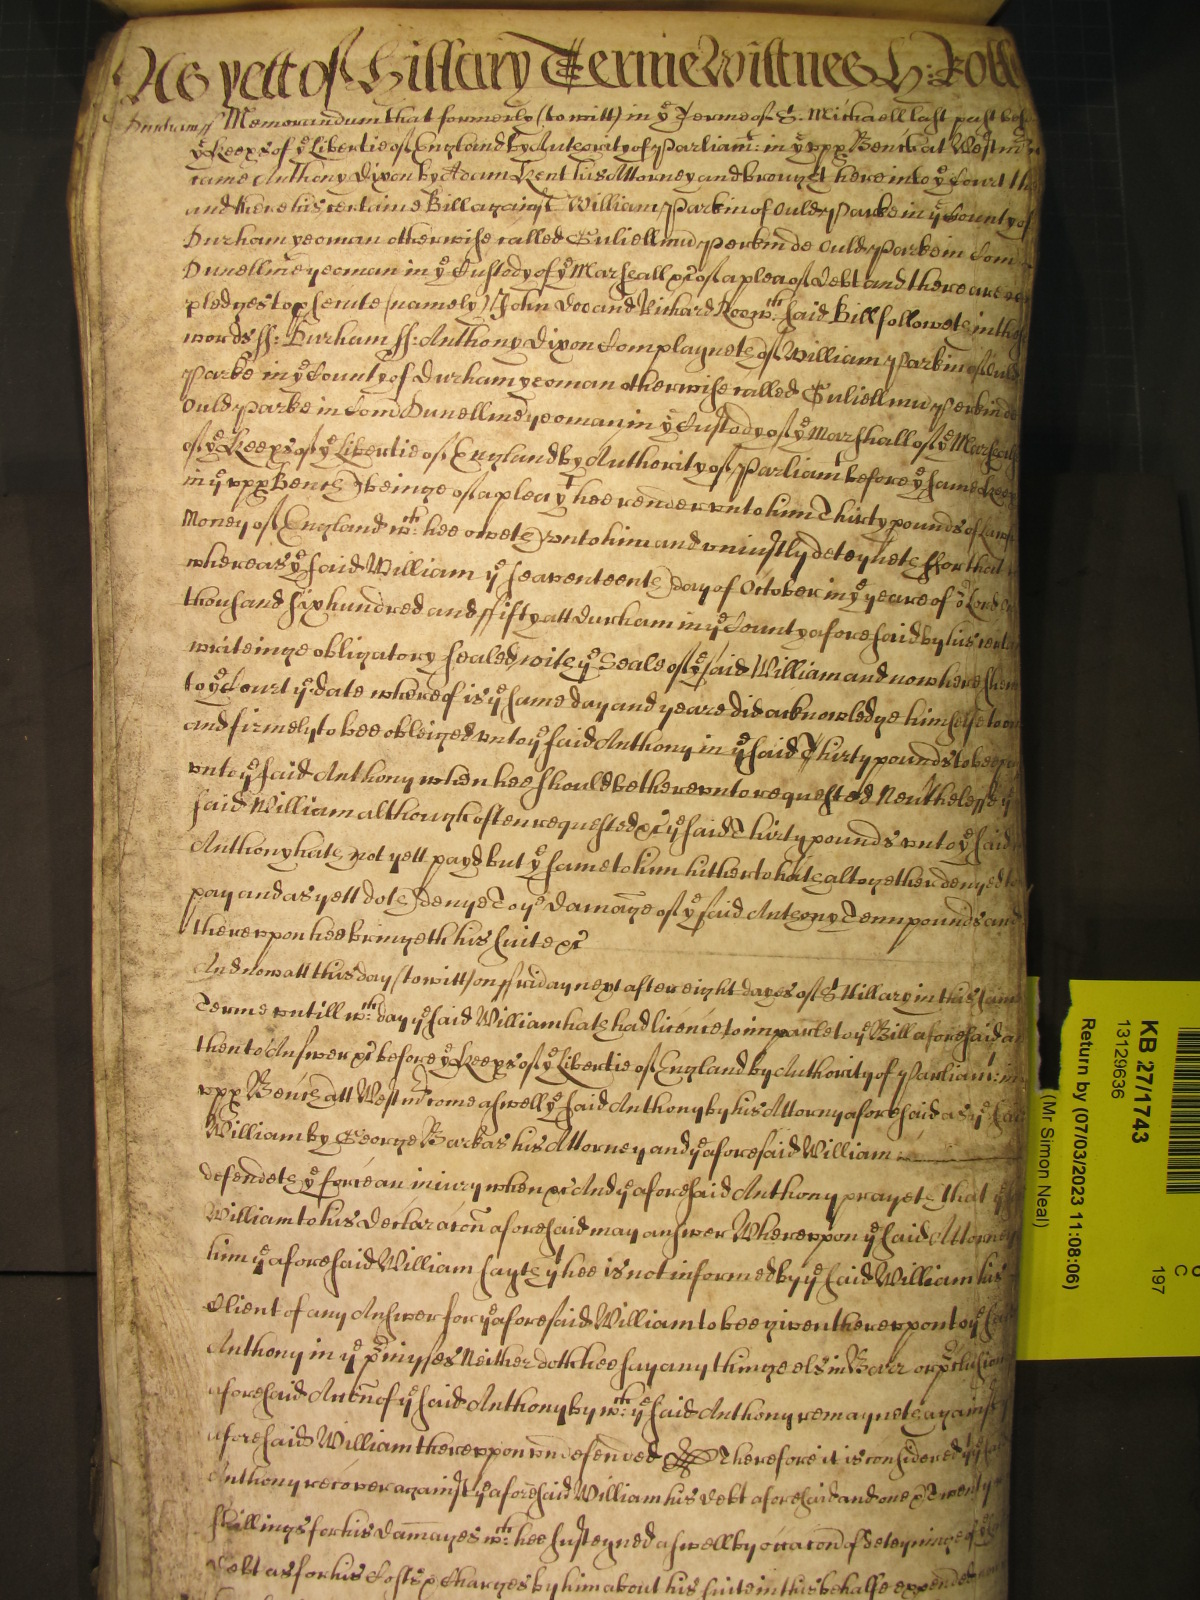 As yett of Hillary Terme Wittnes H: Rolle
Durham ss Memorandum that formerly (to witt) in ye Terme of St. Michaell last past
ye Keeps of ye Libertie of England by Authority of Parliamt: in ye upp Bench at Westmr
came Anthony Dixon by Adam Kent his Attorney and brought here into ye Court
and there his certaine Bill against William Parkin of Ould Parke in ye County of
Durham yeoman otherwise called Guliellmu Perkin de Ould Parke in Com
Dunellme yeoman in ye Custody of ye Marshall &c of a plea of debt and there are
pledges to pseente (namely) John Doo and Richard Roo wch: said Bill followeth in
words ss: Durham ss: Anthony Dixon Complayneth of William Parkin of Ould
Parke in ye County of Durham yeoman otherwise called Guliellmu Perkin de
Ould Parke in Com Dunellme yeoman in ye Custody of ye Marshall of ye
of ye Keeps of ye Libertie of England by Authority of Parliamt before ye same
in ye upp Bench beinge of a plea yt hee render unto him Thirty pounds of
Money of England wch: hee oweth unto him and uniustly deteyneth ffor that
whereas ye said William ye seaventeenth day of October in ye yeare of or Lord
thousand six hundred and ffifty att Durham in ye County aforesaid by his
writeinge obligatory sealed with ye Seale of ye said William and now here
to ye Court ye date whereof is ye same day and yeare did acknowledge himselfe to
and firmely to bee obleiged unto ye said Anthony in ye said Thirty pounds to bee
unto ye said Anthony when hee should be thereunto requested Neutheless ye
said William although often requested &c ye said Thirty pounds unto ye said
Anthony hath not yett payd but ye same to him hitherto hath altogether denyed
pay and as yett doth denye To ye damage of ye said Anthony Tenn pounds and
thereupon hee bringeth his suite &c
And now att this day (to witt) on ffriday next after eight dayes of St Hillary in this same
Terme untill wch: day ye said William hath had licence to imparle to ye Bill aforesaid
then to Answer &c before ye Keeps of ye Libertie of England by Authority of Parliamt:
upp Bench att Westmr come aswell ye said Anthony by his Attorny aforesaid as ye
William by George Barkas his Attorney and ye aforesaid William
defendeth ye force an iniury when &c And ye aforesaid Anthony prayeth that ye
William to his Declaracon aforesaid may answer Whereupon ye said Attorney
him ye aforesaid William sayth yt hee is not informed by ye said William his
Client of any Answer for ye aforesaid William to bee given thereupon to ye
Anthony in ye pmisses Neither doth hee say any thinge els in Barr or pclusion
aforesaid Accn of ye said Anthony by wch: ye said Anthony remayneth against
aforesaid William thereupon undefended Therefore it is considered yt ye
Anthony recover against ye aforesaid William his debt aforesaid and one & Twenty
shillings for his damages wch hee susteyned aswell by occacon of deteyninge of
debt as for his Costs & Charges by him about his suite in this behalfe expended
KB 27/1743
13129636
Return by (07/03/2023 11:08:06)
(Mr Simon Neal)
C
197